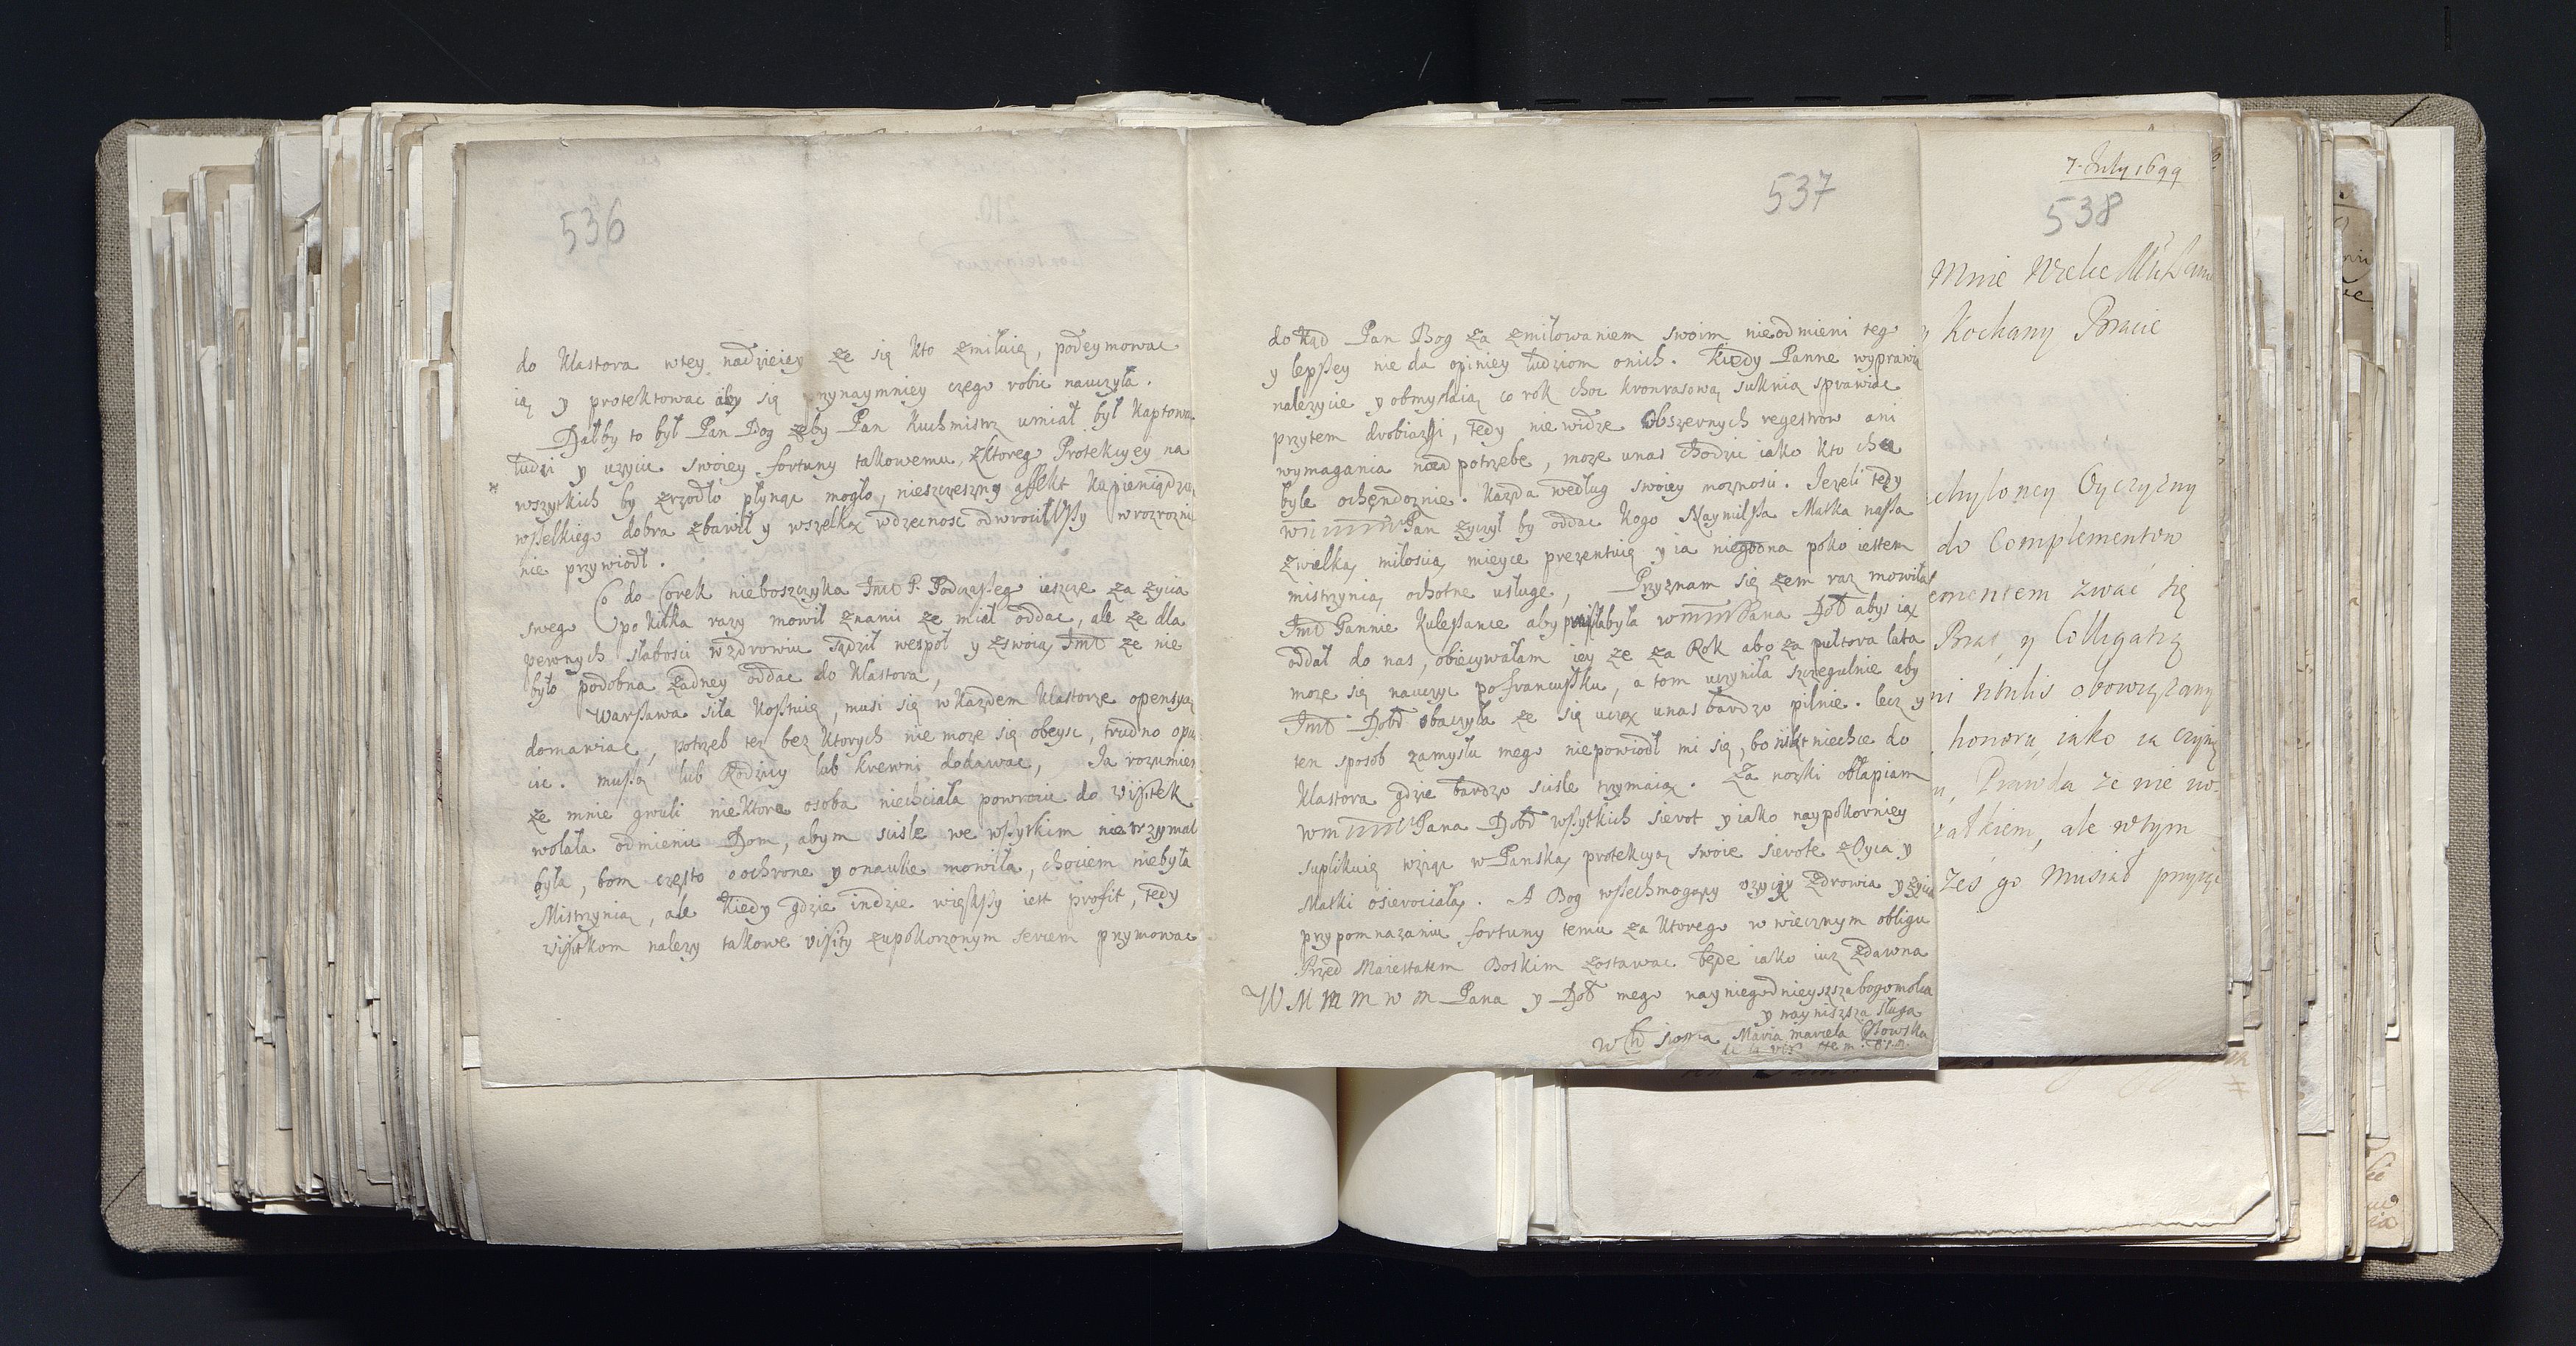 536
do Klastora wtey nadzieiey że się kto zmiłuie, podeymowac
ią y protektowac aby się przynaymniey czego robic nauczyła.
Dałby to był Pan Bog żeby Pan Kuchmistrz umiał był kaptowa
ludzi y uzycie swoiey fortuny takowemu, zktoreg Protekcyey na
wszytkich by zrzodło płynąc mogło, nieszczęszny affekt ku pieniądzo
wßelkiego dobra zbawił y wszelką wdzęcnosc odwrocił wrozrozni
nie przywiodł.
Co do Corek nieboszczyka Jmci P. Podczaßeg ieszcze za życia
swego po kilka razy mowił znami że miał oddac, ale że dla
pewnych słabosci wzdrowiu sądził wespoł y zswoią Jmcią że nie
było podobna żadney oddac do Klastora,
Warßawa siła koßtuie, musi się wkażdem klastorze o pensyą
domawiac, potrzeb tez bez ktorych nie może się obeysc, trudno opu
cic. mußą lub Rodzicy lub krewni dodawac, Ja rozumiem
że mnie gwuli niektora osoba niechciała powrocic do Wißtek
wolała odmienic Dom, abym scisle we wßytkim nietrzymał
była, bom często o ochronie y onauke mowiła, chociem niebyła
Mistrzynią, ale kiedy gdzie indzie więkßy iest profit, tedy
wißtkom nalezy takowe vißity zupokorzonym sercem przymowac
537
dokąd Pan Bog za zmiłowaniem swoim nieodmieni teg
y lepßey nie da opiniey ludziom onich. Kiedy Panne wyprawią
nalezycie y obmyslaią co rok choc kronrasową suknią sprawiac
przytem drobiazgi, tedy nie widze Obszernych regestrow ani
wymagania nad potrzebe, może unas chodzic iako kto chce
byle ochendoznie. każda według swoiey moznosci. Jeżeli tedy
Pan życzył by oddac kogo Naymilßa Matka naßa
zwielką miłoscią mieyce prezentuie y ia niegodna poko iestem
mistrzynią ochotne usługe, Przyznam się żem raz mowiła
Jmci Pannie Kuleßance aby prosiła Pana Dob abys ią
oddał do nas, obiecywałam iey że za Rok abo za pułtora lata
może się nauczyc pofrancußku, a tom uczyniła szczegulnie aby
Jmci Dobr obaczyła że się uczą unas bardzo pilnie. lecz y
ten sposob zamysłu mego niepowiodł mi się, bo nikt niechce do
klastora gdzie bardzo scisle trzymaią. Za nozki obłapiam
Pana Dobr wßytkich sierot y iako naypokorniey
suplikuię wziąc w Panską protekcyą swoie sierote z Oyca y
Matki osierociałą. A Bog wßechmogący uzyczy zdrowia y życia
przypomnazaniu fortuny temu za ktorego w wiecznym obligu
Przed Maiestatem Boskim zostawac będe iako iuz zdawna
W M M M w M Pana y Dob mego nayniegodnieyszza bogomolca
y nayniszsza sługa
siostra Maria Mariela
538
7. July 1699
Kochany Bracie
chyloney Oyczyzny
do Complementow
ementem zwać się
Brat, y Colligatię
obowiązany
honoru, iako ia czynię
Prawda że nie no:
ale wtym
żeś go musiał